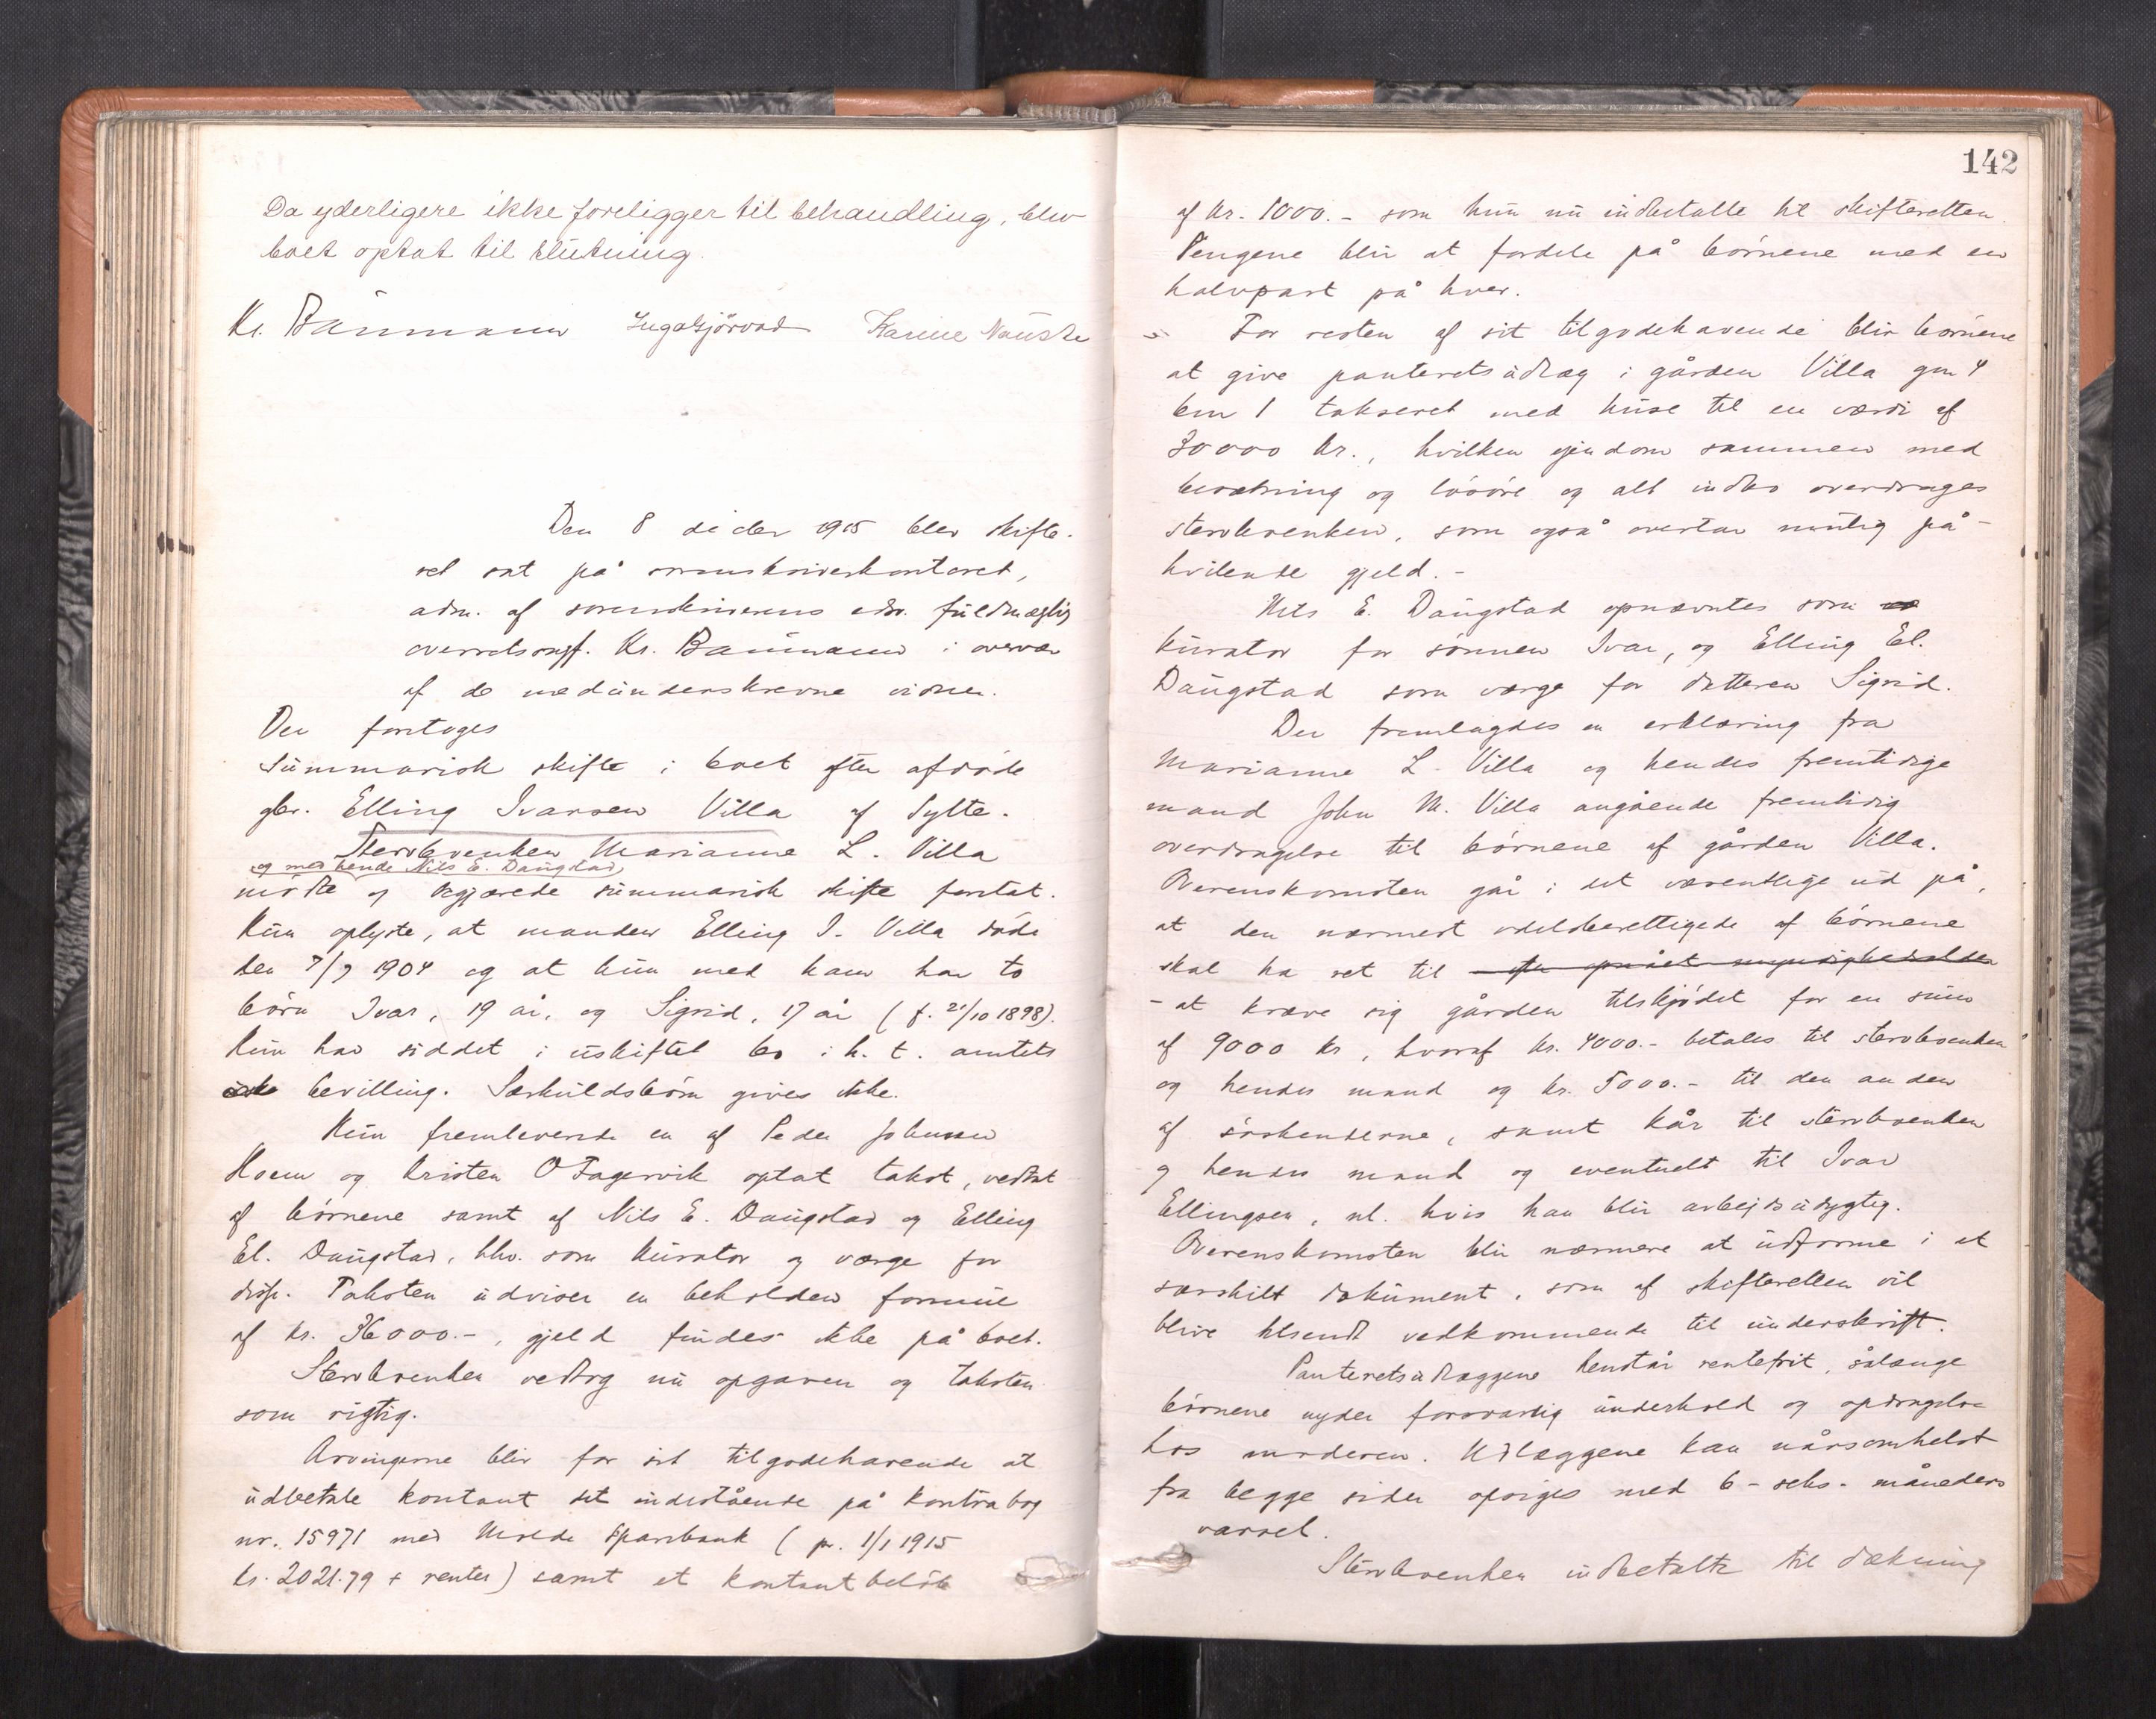 Da yderligere ikke foreligger til behandling, blev
boet optat til slutning.
Kr. Baumann Inga Gjörvad Karine Nauste
Den 8 decbr 1915 blev skifte-
ret sat på sorenskriverkontoret,
adm. af sorenskriverens edsv. fuldmægtig
overretssagf. Kr. Baumann i overvær
af de medunderskrevne vidner.
Der foretoges
Summarisk skifte i boet efter afdöde
gbr. Elling Ivarsen Villa af Sylte.
Stervboenken Marianne L. Villa
og med hende Nils E. Daugstad
mödte og begjærede summarisk skifte foretat.
Hun oplyste, at manden Elling I. Villa döde
den 7/7 1904 og at hun med ham har to
börn Ivar, 19 år, og Sigrid, 17 år (f. 21/10 1898).
Hun har siddet i uskiftet bo i h. t. amtets
bevilling. Særkuldsbörn gives ikke.
Hun fremleverede en af Peder Johnsen
Hoem og Kristen O Fagervik optat takst, vedtat
af börnene samt af Nils E. Daugstad og Elling
El. Daugstad, hhv. som kurator og værge for
disse. Taksten udviser en beholden formue
af kr. 36000.-, gjeld findes ikke på boet.
Stervboenken vedtog nu opgaven og taksten
som rigtig.
Arvingerne blir for sit tilgodehavende at
udbetale kontant det indestående på kontrabog
nr. 15971 med Molde Sparebank (pr. 1/1 1915
kr. 2021.79 + renter) samt et kontantbelöb
142
af kr. 1000.- som hun nu indbetalte til skifteretten.
Pengene blir at fordele på börnene med en
halvpart på hver.
For resten af sit tilgodehavende blir börnene
at give panteretsudlæg i gården Villa gnr 4
bnr 1 takseret med huse til en værdi af
30000 kr., hvilken ejendom sammen med
besætning og lösöre og alt indbo overdrages
stervboenken, som også overtar mulig på-
hvilende gjeld.-
Nils E. Daugstad opnævntes som
kurator for sönnen Ivar, og Elling El.
Daugstad som værge for datteren Sigrid.
Der fremlagdes en erklæring fra
Marianne L. Villa og hendes fremtidige
mand John M. Villa angående fremtidig
overdragelse til börnene af gården Villa.
Overenskomsten går i det væsentlige ud på,
at den nærmest odelsberettigede af börnene
skal ha ret til efter opnået myndighedsalder
- at kræve sig gården tilskjödet for en sum
af 9000 kr, hvoraf kr. 4000.- betales til stervboenken
og hendes mand og kr. 5000.- til den anden
af söskenderne, samt kår til stervboenken
og hendes mand og eventuelt til Ivar
Ellingsen, nl. hvis han blir arbejdsudygtig.
Overenskomsten blir nærmere at udforme i et
særskilt dokument, som af skifteretten vil
blive tilsendt vedkommende til underskrift.
Panteretsudlæggene henstår rentefrit, sålænge
börnene nyder forsvarlig underhold og opdragelse
hos moderen. Udlæggene kan nårsomhelst
fra begge sider opsiges med 6 - seks - måneders
varsel.
Stervboenken indbetalte til dækning